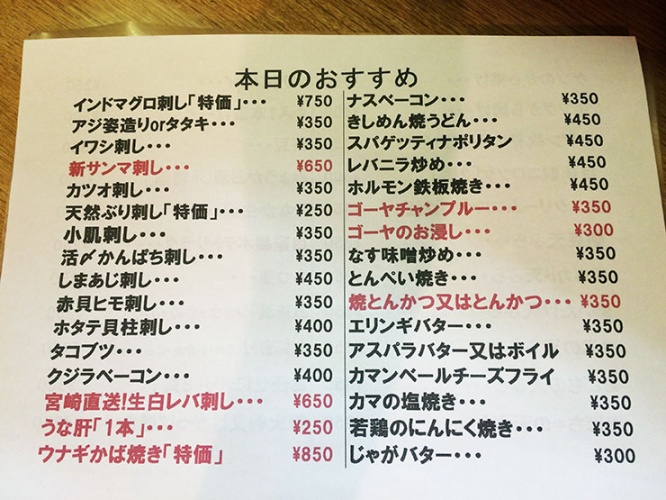 本日のおすすめ
インドマグロ刺し「特価」・・・ ¥750
アジ姿造りorタタキ・・・ ¥350
イワシ刺し・・・ ¥350
新サンマ刺し・・・ ¥650
カツオ刺し・・・ ¥350
天然ぶり刺し「特価」・・・ ¥250
小肌刺し・・・ ¥350
活〆かんぱち刺し・・・ ¥350
しまあじ刺し・・・ ¥450
赤貝ヒモ刺し・・・ ¥350
ホタテ貝柱刺し・・・ ¥400
タコブツ・・・ ¥350
クジラベーコン・・・ ¥400
宮崎直送!生白レバ刺し・・・ ¥650
うな肝「1本」・・・ ¥250
ウナギかば焼き「特価」 ¥850
ナスベーコン・・・ ¥350
きしめん焼うどん・・・ ¥450
スパゲッティナポリタン ¥450
レバニラ炒め・・・ ¥450
ホルモン鉄板焼き・・・ ¥450
ゴーヤチャンプルー・・・ ¥350
ゴーヤのお浸し・・・ ¥300
なす味噌炒め・・・ ¥350
とんぺい焼き・・・ ¥350
焼とんかつ又はとんかつ・・・ ¥350
エリンギバター・・・ ¥350
アスパラバター又はボイル ¥350
カマンベールチーズフライ ¥350
カマの塩焼き・・・ ¥350
若鶏のにんにく焼き・・・ ¥350
じゃがバター・・・ ¥300